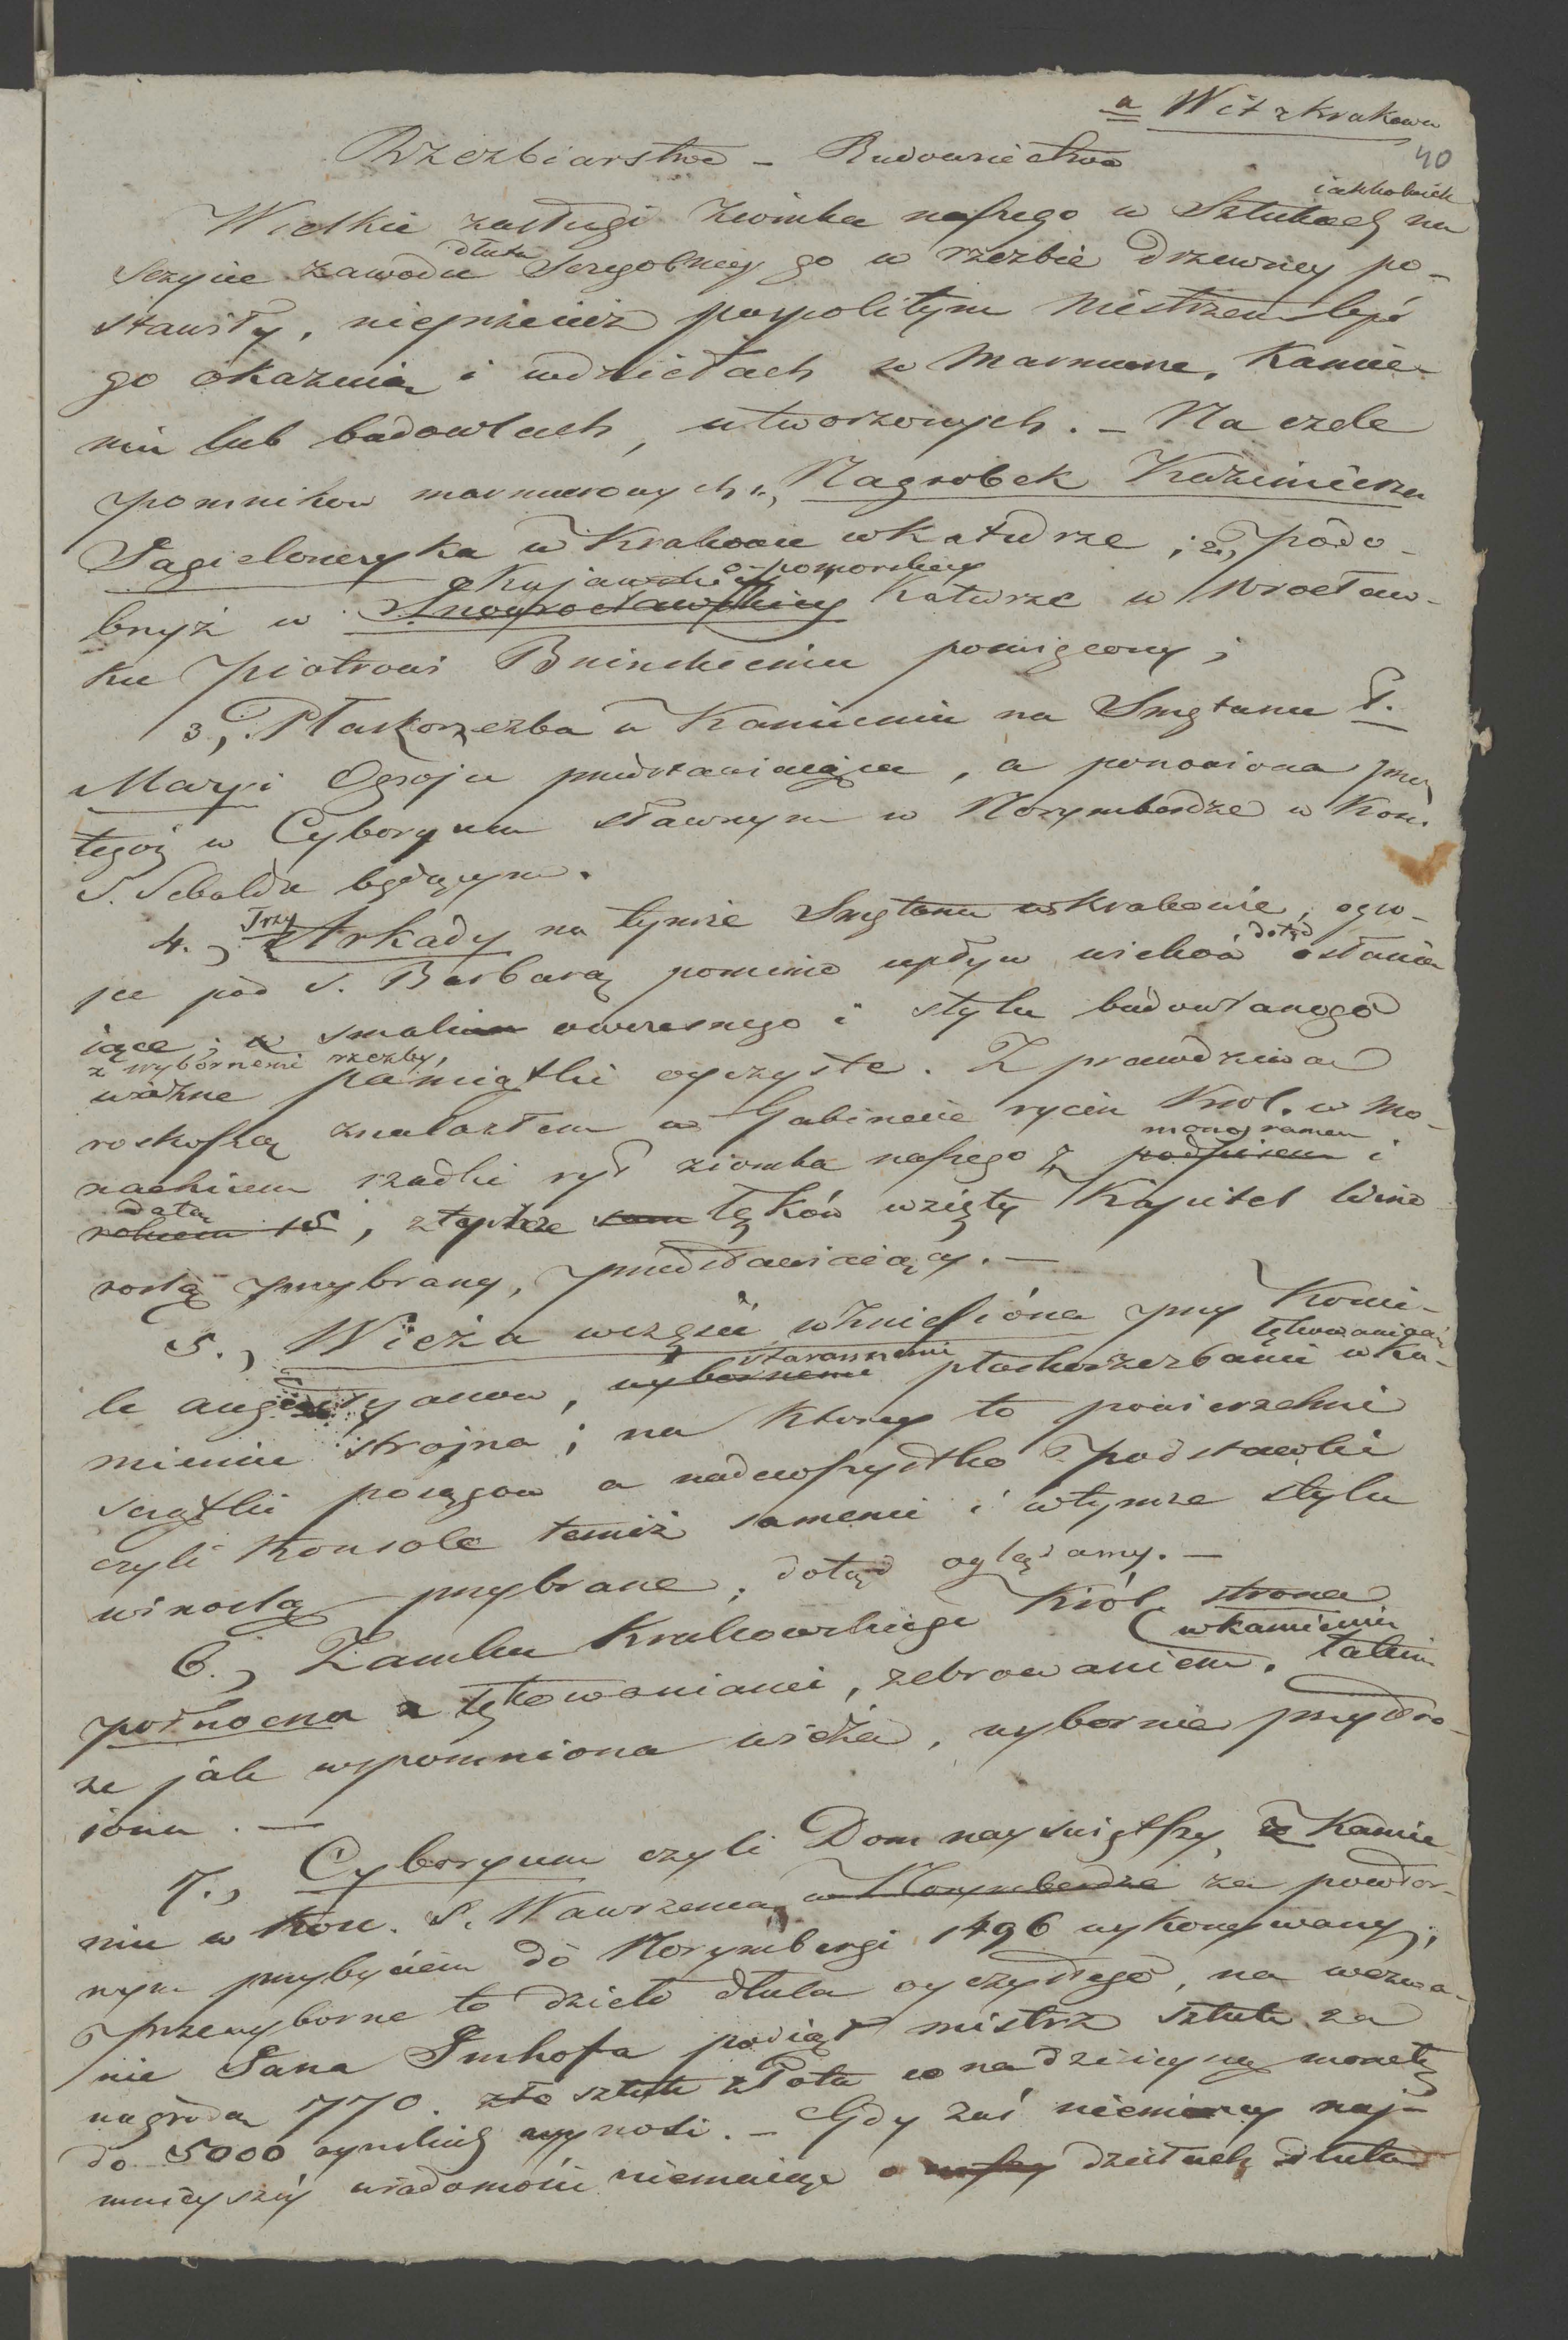 a Wit z Krakowa
40
Rzezbiarstwo – Budownictwo
Wielkie zasługi ziomka naszego w Sztukach na
szczycie zawodu dłuta Szczegolniey go w rzezbie drzewney po-
stawiły, nieprzeciez pospolitym Mistrzem bydź
go okazuią i w dziełach w Marmurze, Kamie-
niu lub budowlach, utworzonych. – Na czele
pomnikow marmurowych 1., Nagrobek Kazimierza
Jagielonczyka w Krakowie w Katedrze; 2., podo-
bnyż w Kujawsko-pomorskiey Inowrocławskiey Katedrze w Wrocław-
ku Piotrowi Bninskiemu poswięcony;
3., Płaskorzezba w Kamieniu na Smętarzu P.
Maryi Ogrojca przedstawiaiąca, a ponowiona przez
tegoż w Cyboryum sławnym w Norymberdze w Kość.
S. Sebalda będącym.
4., Trzy Arkady na tymże Smętarzu w Krakowie, ogro-
jce pod S. Barbarą pomimo upływ wiekow dotąd osłania
iące; w smaku owczesnego i stylu budowlanego
z wybornemi rzezby,
ważne pamiątki oyczyste. Z prawdziwą
roskoszą znalazłem w Gabinecie rycin Krol. w Mo-
nachium rzadki ryt ziomka naszego z monogramem podpisem i
datą rokiem 15, z tychże sam łęków wzięty Kapitel wino
roslą przybrany, przedstawiaiący. –
5., Wieża w części wzniesióna przy Kości-
le augustyanow, starannemi wybornemi płaskorzezbami łękowaniami w Ka-
mieniu strojna; na ktorey to powierzchni
szczątki posągow a nadewszystko podstawki
czyli Konsole temiż samemi i w tymże stylu
winoslą przybrane, dotąd oglądamy. –
6., Zamku Krakowskiego Król. strona
połnocna z łękowaniami, żebrowaniem, w kamieniu takim
że jak wspomniona wieża, wybornie przystro-
iona. –
7., Cyboryum czyli Dom nayswiętszy z Kamie
niu w Kość. S. Wawrzenca w Norymberdze za powtor-
nym przybyciem do Norymbergi 1496 wykonywany;
przewyborne to dzieło dłuta oyczystego, na wezwa-
nie Jana Imhofa podiął mistrz sztuk za
nagrodą 770. złe sztuk złota co na dzisieyszą monetę
do 5000 rynskich wynosi. – Gdy zaś niemcy naj-
mnieyszéj wiadomości niemaiąc o naszey dziełach dłuta